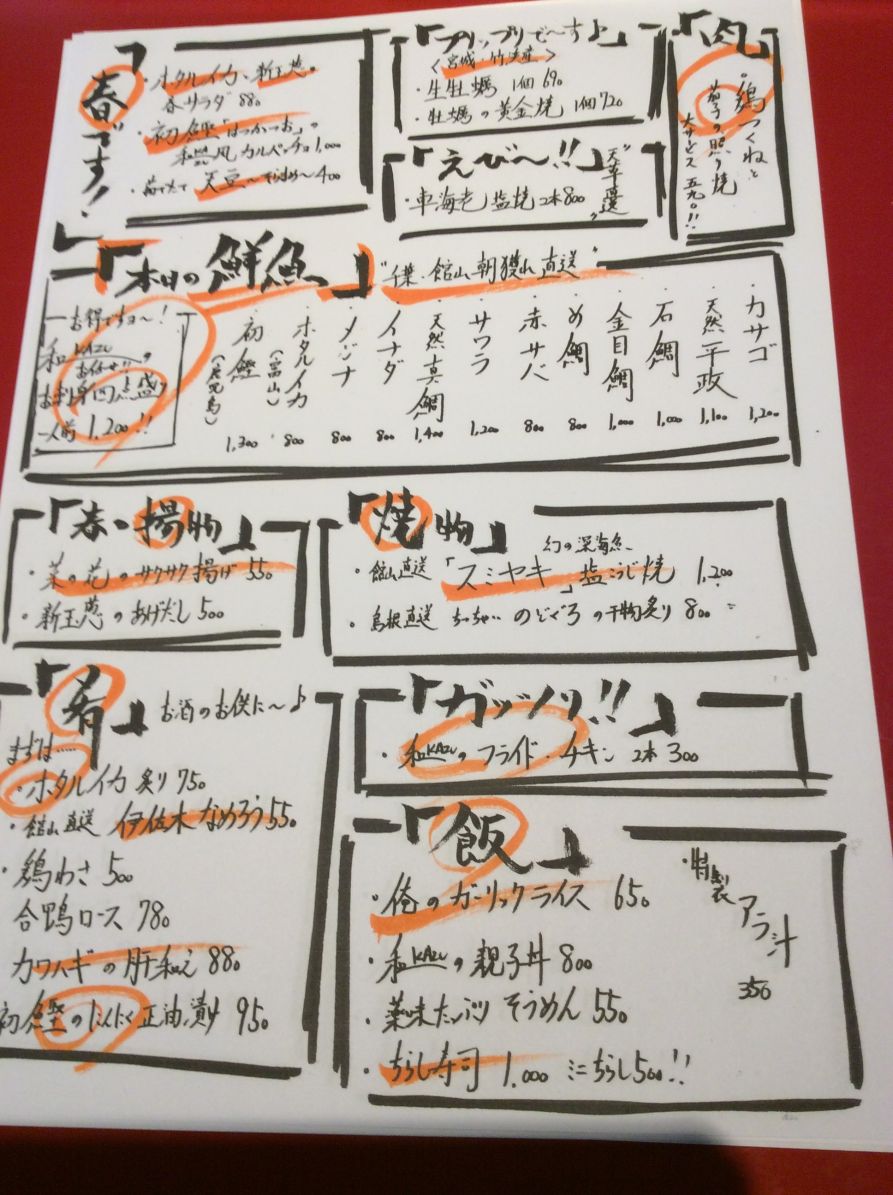 「春です！」
・ホタルイカ・新玉葱の
春サラダ 880
・初鰹「はつがつお」の
和風カルパッチョ 1,000
・茹でたて 天豆〜そらまめ〜400
「プリップリで〜す♪」
・生牡蠣 1個 690
・牡蠣の黄金焼 1個720
「えび〜!!」
・車海老 塩焼 2本800
「肉」
・鶏つくねと
茄子の照り焼
「本日の鮮魚」
"千葉・館山朝獲れ直送"
・カサゴ 1,200
・天然平政 1,100
・石鯛 1,000
・金目鯛 1,000
・め鯛 800
・赤サバ 800
・サワラ 1,200
・天然真鯛 1,400
・イナダ 800
・メジナ 800
・ホタルイカ（富山） 800
・初鰹（鹿児島） 1,300
お得ですヨ〜！
和KAZU
お任せ!!の
お刺身四点盛り
一人前 1,200!!
「春・揚物」
・菜の花のサクサク揚げ 550
・新玉葱のあげだし 500
「焼物」
幻の深海魚
・館山直送「スミヤキ」塩こうじ焼 1,200
・島根直送 ちっちゃい のどぐろの干物炙り 800
「肴」お酒のお供に〜♪
まずは……
・ホタルイカ 炙り 750
・館山直送 伊佐木なめろう550
・鶏わさ 500
合鴨ロース 780
カワハギの肝和え 880
初鰹のにんにく正油漬け 950
「ガッツリ!!」
・和KAZUのフライド・チキン 2本 300
「飯」
・俺のガーリックライス 650
・和KAZUの親子丼 800
・薬味たっぷりそうめん 550
・ちらし寿司 1,000 ミニちらし500!!
・特製
アラ汁
350